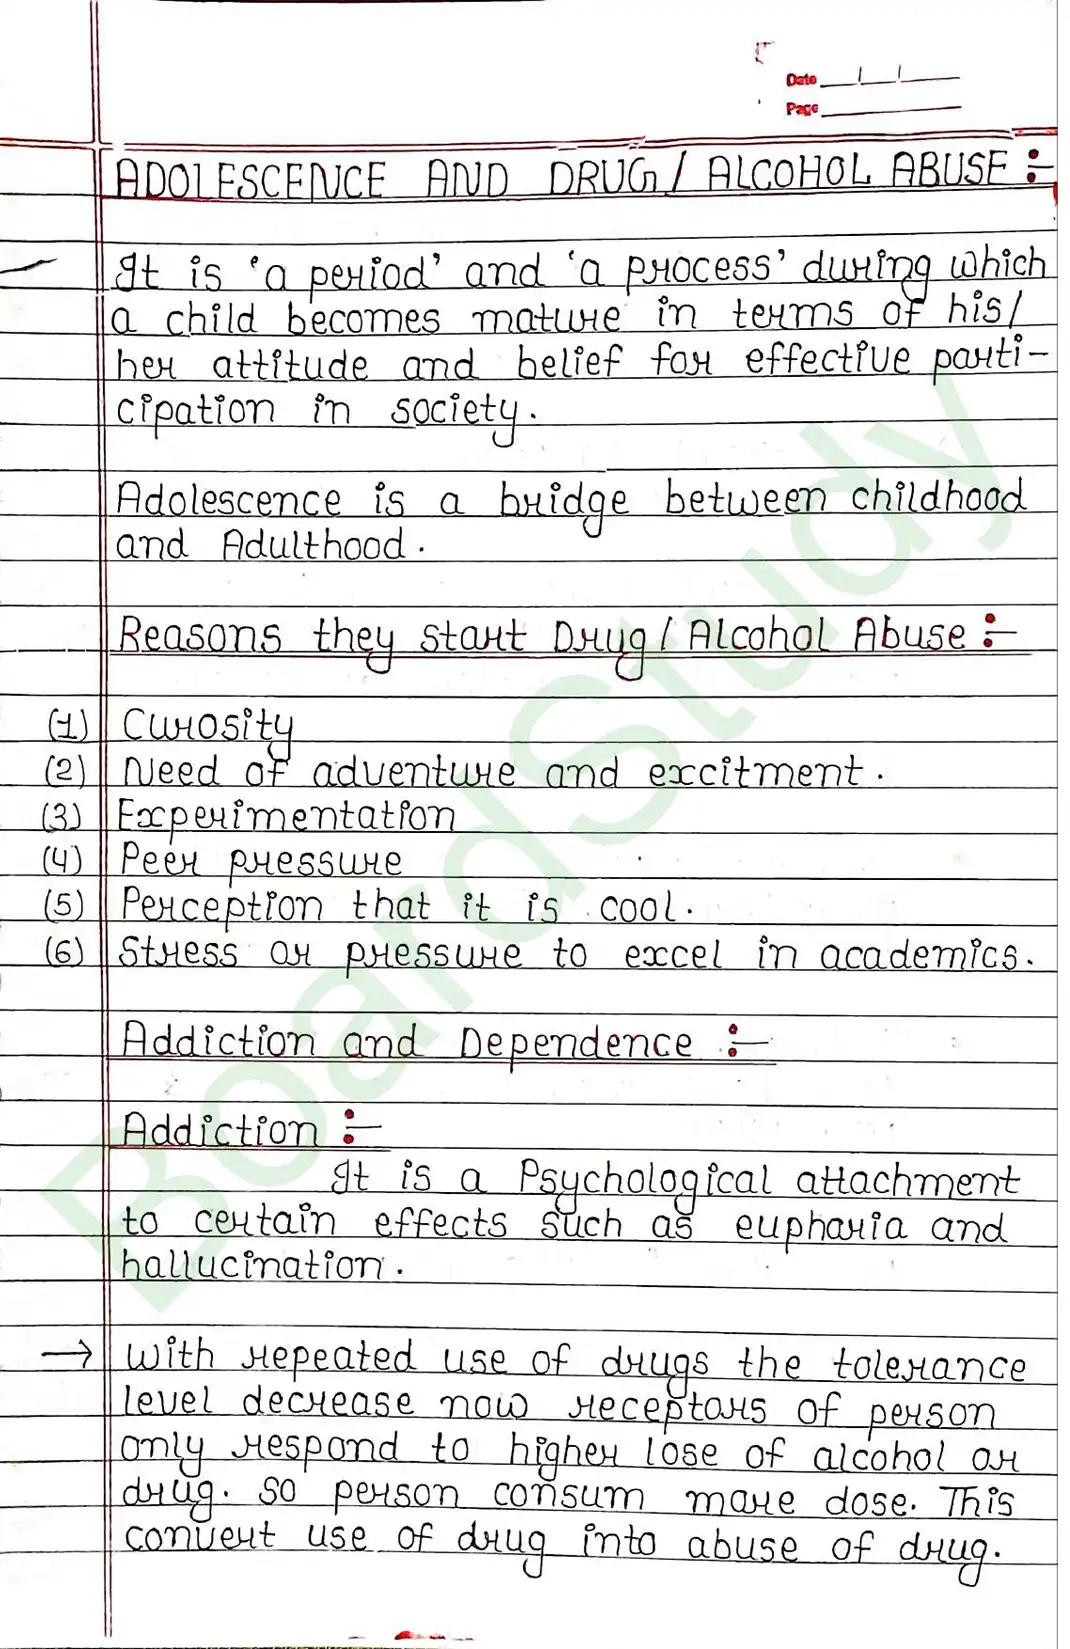 Date
Page
ADOLESCENCE AND DRUG / ALCOHOL ABUSE :-
It is 'a period' and 'a process' during which
a child becomes mature in terms of his/
her attitude and belief for effective parti-
cipation in society.
Adolescence is a bridge between childhood
and Adulthood.
Reasons they start Drug / Alcohol Abuse :-
(1) Curosity
(2) Need of adventure and excitment.
(3) Experimentation
(4) Peer pressure
(5) Perception that it is cool.
(6) Stress or pressure to excel in academics.
Addiction and Dependence :-
Addiction :-
It is a Psychological attachment
to certain effects such as euphoria and
hallucination.
→ With repeated use of drugs the tolerance
level decrease now receptors of person
only respond to higher lose of alcohol or
drug. So person consum more dose. This
convert use of drug into abuse of drug.
BoardStudy